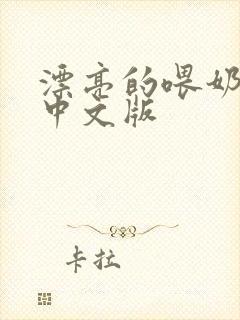 漂亮的喂奶
中文版
卡拉